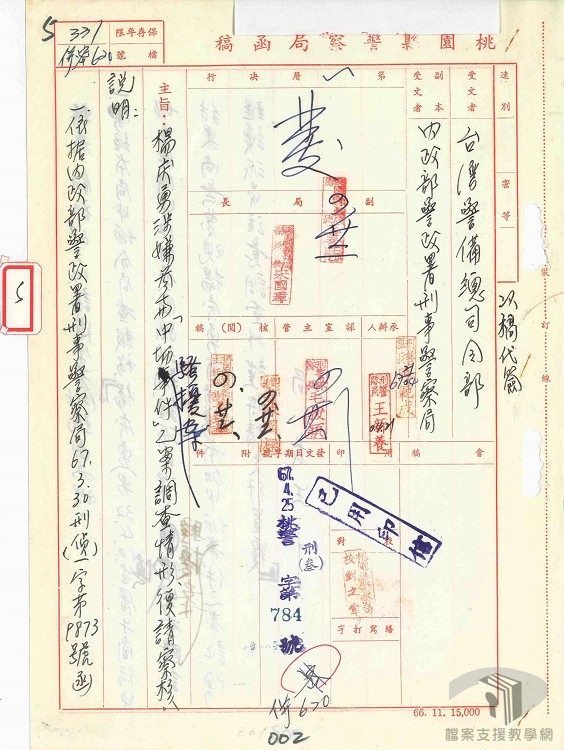 桃園縣警察局函稿
保存年限
檔號
337
速別
密等
受文者
台灣警備總司令部
副本
受文者
內政部警政署刑事警察局
以稿代簽
裝訂線
第一層決行
副局長
承辦人
課室主管
核(閱)稿
會稿
用印
發文日期字號
附件
校對
繕寫打字
67.4.25
桃警刑(叁)字第784號
已用印信
主旨：楊庆勇涉嫌參與「中坜事件」騷擾案乙案調查情形復請察核。
説明：
一、依据內政部警政署刑事警察局67.3.30刑偵(一)字第9873號函
5
5
620
002
66.11.15,000
檔案支援教學網